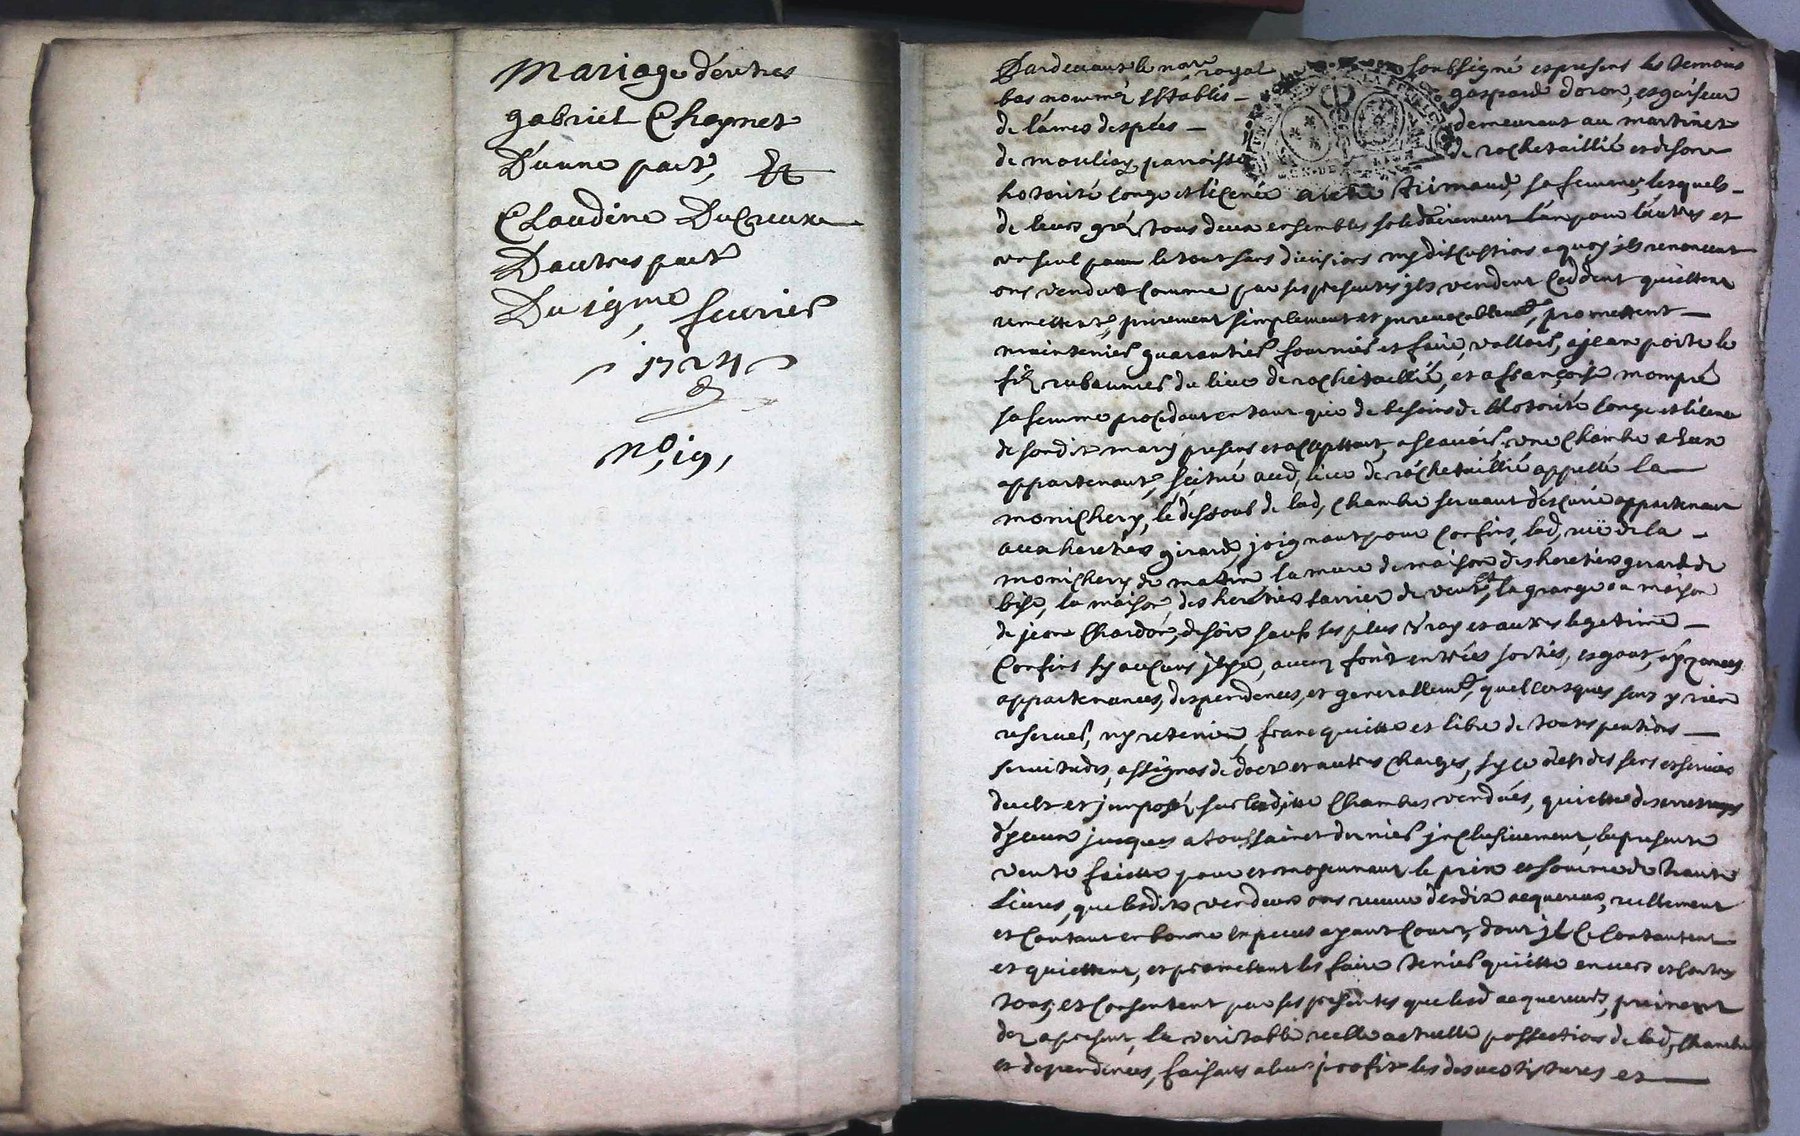 Mariage d'entres
gabriel Chaynet
D'une part, Et
Claudine Ducreuxe
D'autres part
Du 19me febvrier
1724
No. 19,
Pardevant le nore royal soubsigné et presens les temoins
bas nommés establis gaspard doron, esguiseur
de lames despées demeurant au martinet
de moulin, paroisse de rochetaillié et de son
hotorité longe et licence trimaud, sa femme, lesquels
de leurs gré tous deux ensembles solidairement l'un pour l'autres et
un seul pour le tout sans divisions ny discustions a quoy jls renoncent
ont vendu comme par ses presentes jls vendent Ceddent quiettent
remettent, purement simplement et jnrevocablemt, promettent
maintenier guarantier fournier et faire valloir, a jean porte le
fis rubannier du lieu de rochetaillié, et a françoise mompré
sa femme procedant en tant que de besoins de l'hotorité longe et licence
de sondit mary presens et acceptant, a scavoir, une Chambre a eux
appartenant, scituée aud, lieu de rochetaillié appellé la
monichery, le dessous de lad, Chambre servant d'escurie appartenant
aux heretiers girard, joignant pour Confins, lad, rue de la
monichery de matin la mure de maison des heretiers girard de
bise, la maison des heretiers barrier de vent, la grange ou maison
de jean Chardon, de soir saufs ses plus vray et autres legetime
Confins sy aucuns jlya, avec fond entrées sorties, esgout, ayzances
appartenances, despendences, et generallemt, quelconques sans y rien
reserver, ny retenir, franc quitte et libre de toutes pentions
servitudes, assignas de doct et autres Charges, sy ce n'est des sens et servics
deubt et jmposés sur laditte Chambres venduës, quitte des arrerages
d'yceux jusques a toussainct dernier jnclusivement, la presente
vente faitte pour et moyennant le prix et somme de trante
Livres, que lesdits vendeurs ont receu desdits acquereurs, reellement
et Contant en bonne espeses ayant Cours, dont jls Ce Contantent
et quiettent, et promettant les faire tenier quitte envers et Contres
tous, et Consentent par ses presentes que lesd acquereurs, preinent
des apresent, la veritable reelle actuelle possections de lad, Chambre
et dependences, faisant a leur profit les desvestitures et